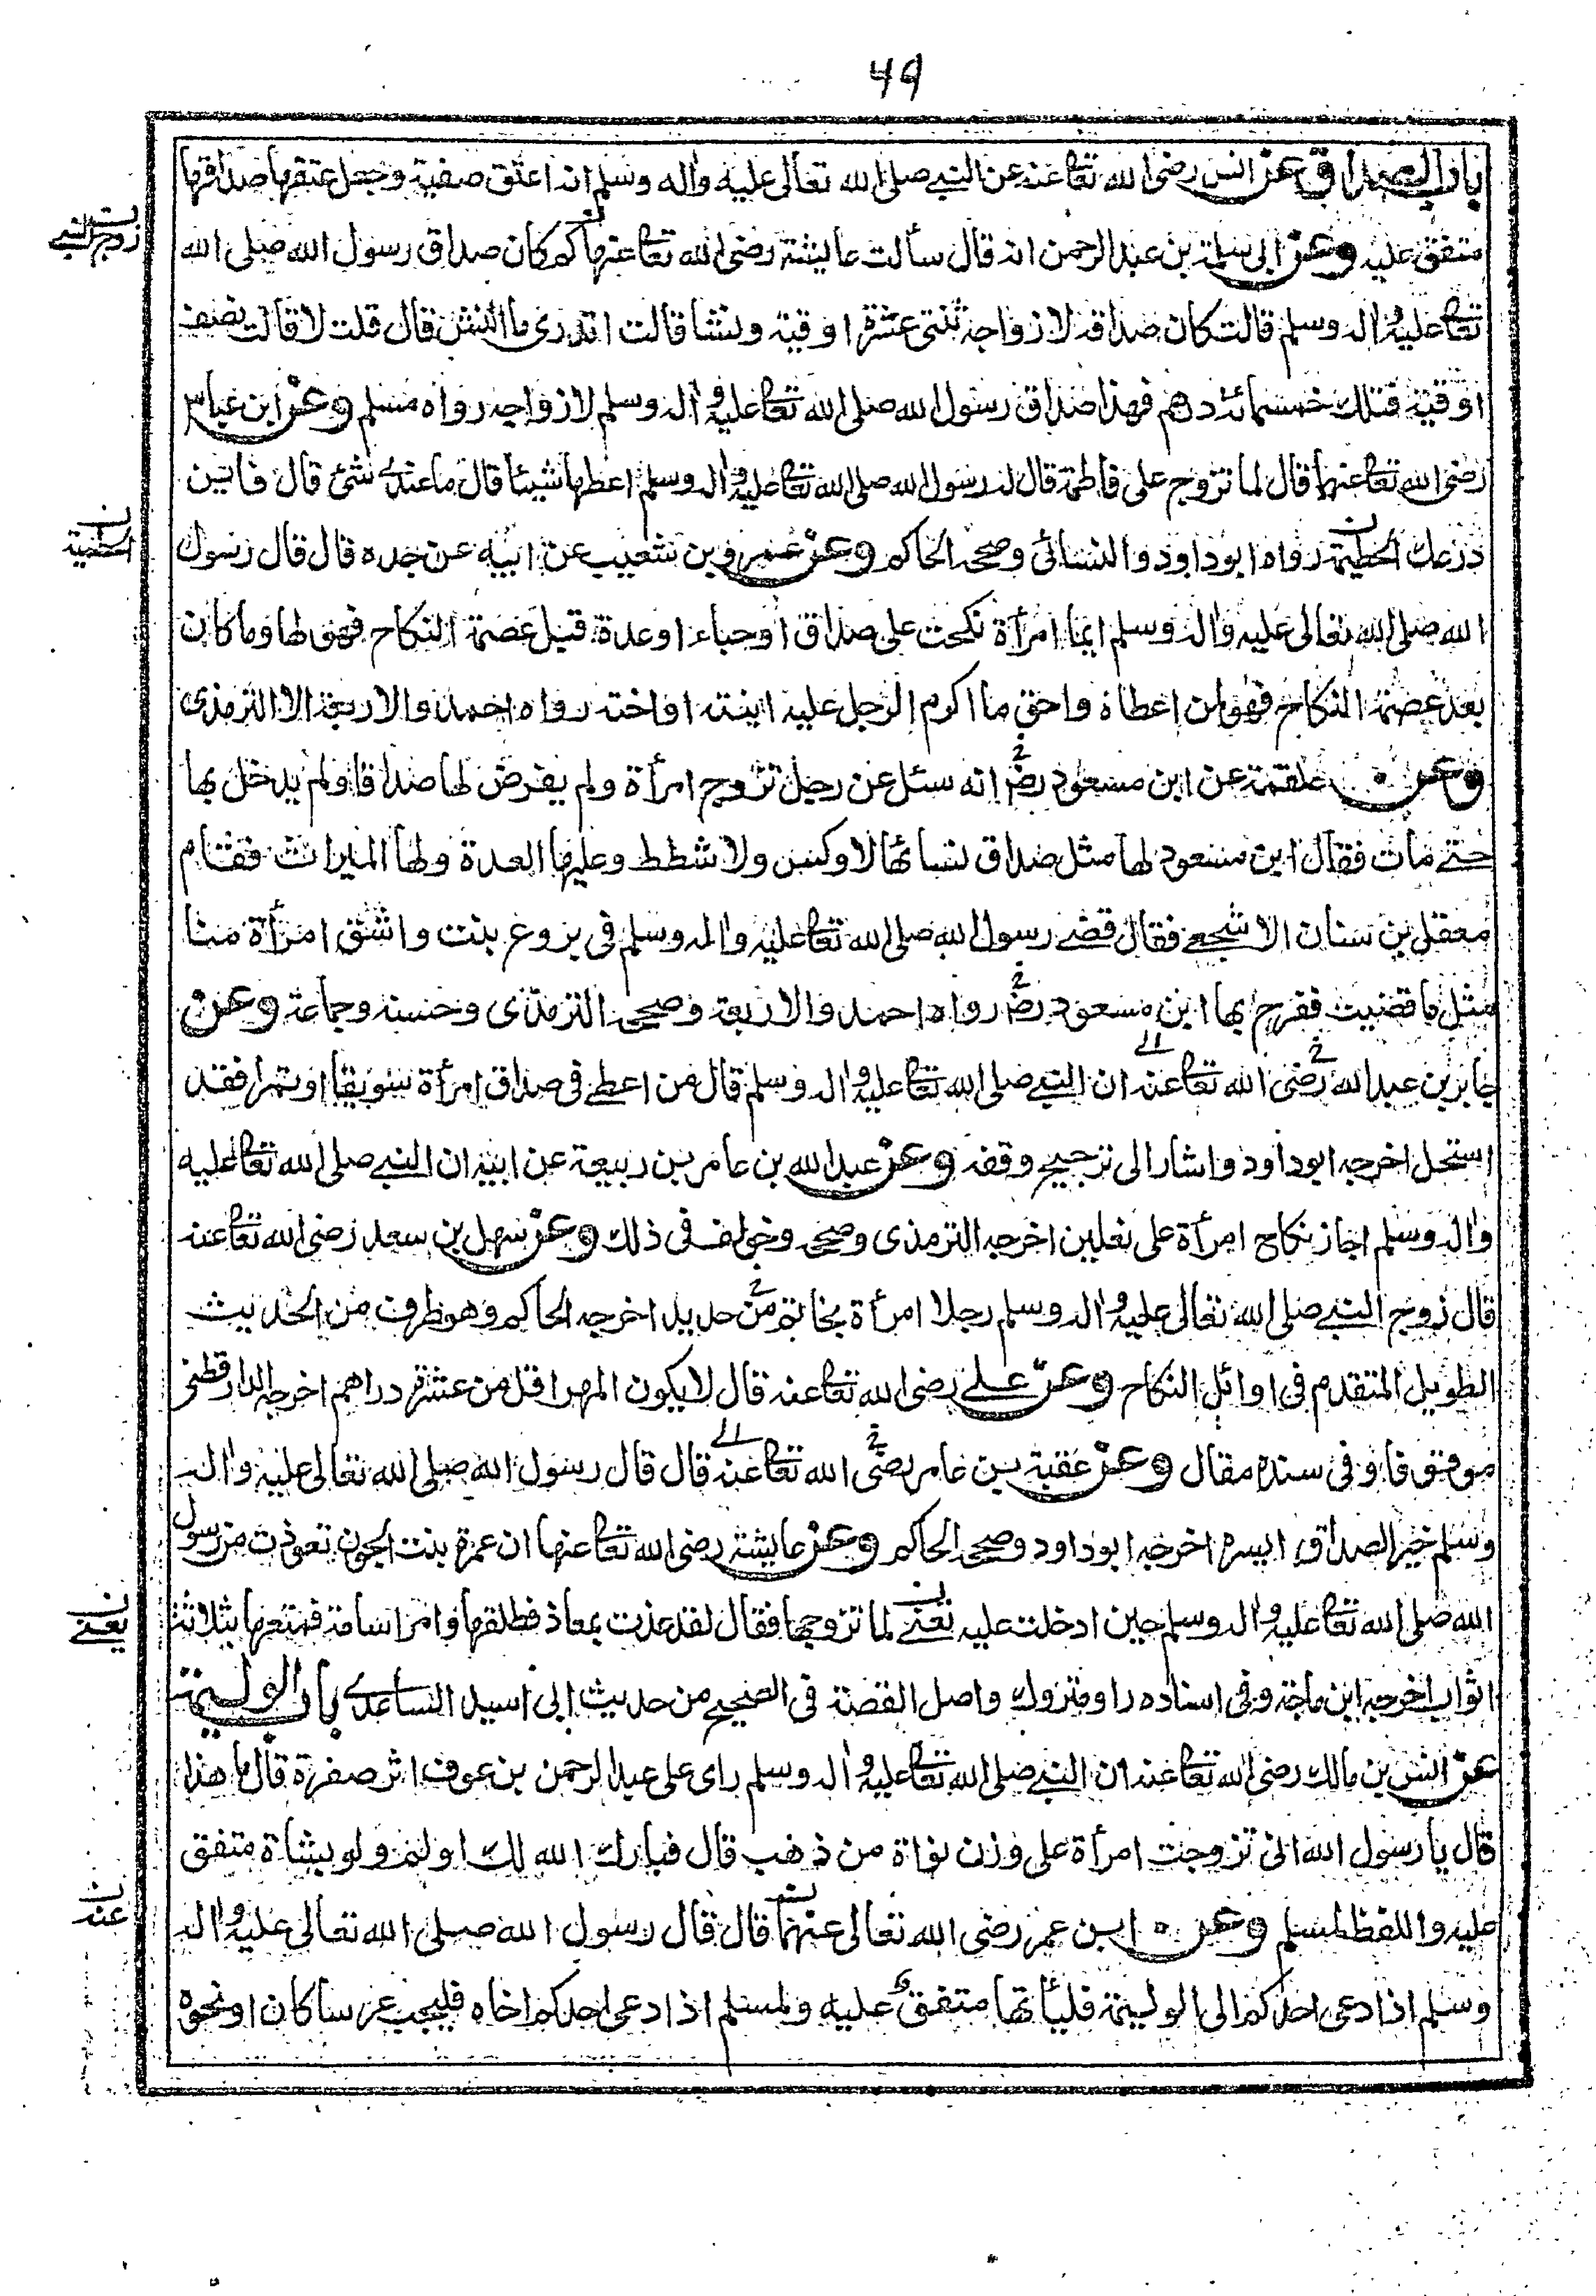 49
باب الصداق عن انس رضى الله تعا عنه عن النبي صلى الله تعالى عليه واله وسلم انه اعتق صفية وجعل عتقها صداقها
متفق عليه وعن ابى سلمة بن عبد الرحمن انه قال سألت عايشة رضى الله تعا عنها كم كان صداق رسول الله صلى الله
زوج النبي
تعا عليه واله وسلم قالت كان صداقه لازواجه ثنتى عشرة اوقية ونشا قالت اتدرى ما النش قال قلت لا قالت نصف
اوقية فتلك خمسمائة درهم فهذا صداق رسول الله صلى الله تعا عليه واله وسلم لازواجه رواه مسلم وعن ابن عباس
رضى الله تعا عنهما قال لما تزوج على فاطمة قال له رسول الله صلى الله تعا عليه واله وسلم اعطها شيئا قال ما عندى شئ قال فاين
درعك الحطيمة رواه ابو داود والنسائى وصححه الحاكم وعن عمرو بن شعيب عن ابيه عن جده قال قال رسول
الله صلى الله تعالى عليه واله وسلم ايما امرأة نكحت على صداق او حباء او عدة قبل عصمة النكاح فهو لها وما كان
بعد عصمة النكاح فهو لمن اعطاه واحق ما اكرم الرجل عليه ابنته او اخته رواه احمد والاربعة الا الترمذى
وعن علقمة عن ابن مسعود رض انه سئل عن رجل تزوج امرأة ولم يفرض لها صداقا ولم يدخل بها
حتى مات فقال ابن مسعود لها مثل صداق نسائها لا وكس ولا شطط وعليها العدة ولها الميراث فقام
معقل بن سنان الاشجعي فقال قضى رسول الله صلى الله تعا عليه واله وسلم فى بروع بنت واشق امرأة منا
مثل ما قضيت ففرح بها ابن مسعود رض رواه احمد والاربعة وصححه الترمذى وحسنه وجماعة وعن
جابر بن عبد الله رضى الله تعا عنه ان النبي صلى الله تعا عليه واله وسلم قال من اعطى فى صداق امرأة سويقا او تمرا فقد
استحل اخرجه ابو داود واشار الى ترجيح وقفه وعن عبد الله بن عامر بن ربيعة عن ابيه ان النبي صلى الله تعا عليه
واله وسلم اجاز نكاح امرأة على نعلين اخرجه الترمذى وصححه وخولف فى ذلك وعن سهل بن سعد رضى الله تعا عنه
قال زوج النبي صلى الله تعالى عليه واله وسلم رجلا امرأة بخاتم من حديد اخرجه الحاكم وهو طرف من الحديث
الطويل المتقدم فى اوائل النكاح وعن على رضى الله تعا عنه قال لا يكون المهر اقل من عشرة دراهم اخرجه الدارقطنى
موقوفا وفى سنده مقال وعن عقبة بن عامر رضى الله تعا عنه قال قال رسول الله صلى الله تعالى عليه واله
وسلم خير الصداق ايسره اخرجه ابو داود وصححه الحاكم وعن عايشة رضى الله تعا عنها ان عمرة بنت الجون تعوذت من رسول
الله صلى الله تعا عليه واله وسلم حين ادخلت عليه تعنى لما تزوجها فقال لقد عذت بمعاذ فطلقها وامر اسامة فمتعها بثلاثة
يعنى
اثواب اخرجه ابن ماجة وفى اسناده راو متروك واصل القصة فى الصحيح من حديث ابى اسيد الساعدى باب الوليمة
عن انس بن مالك رضى الله تعا عنه ان النبي صلى الله تعا عليه واله وسلم راى على عبد الرحمن بن عوف اثر صفرة قال ما هذا
قال يا رسول الله انى تزوجت امرأة على وزن نواة من ذهب قال فبارك الله لك اولم ولو بشاة متفق
عليه واللفظ لمسلم وعن ابن عمر رضى الله تعالى عنهما قال قال رسول الله صلى الله تعالى عليه واله
عنه
وسلم اذا دعى احدكم الى الوليمة فليأتها متفق عليه ولمسلم اذا دعى احدكم اخاه فليجب عرسا كان او نحوه